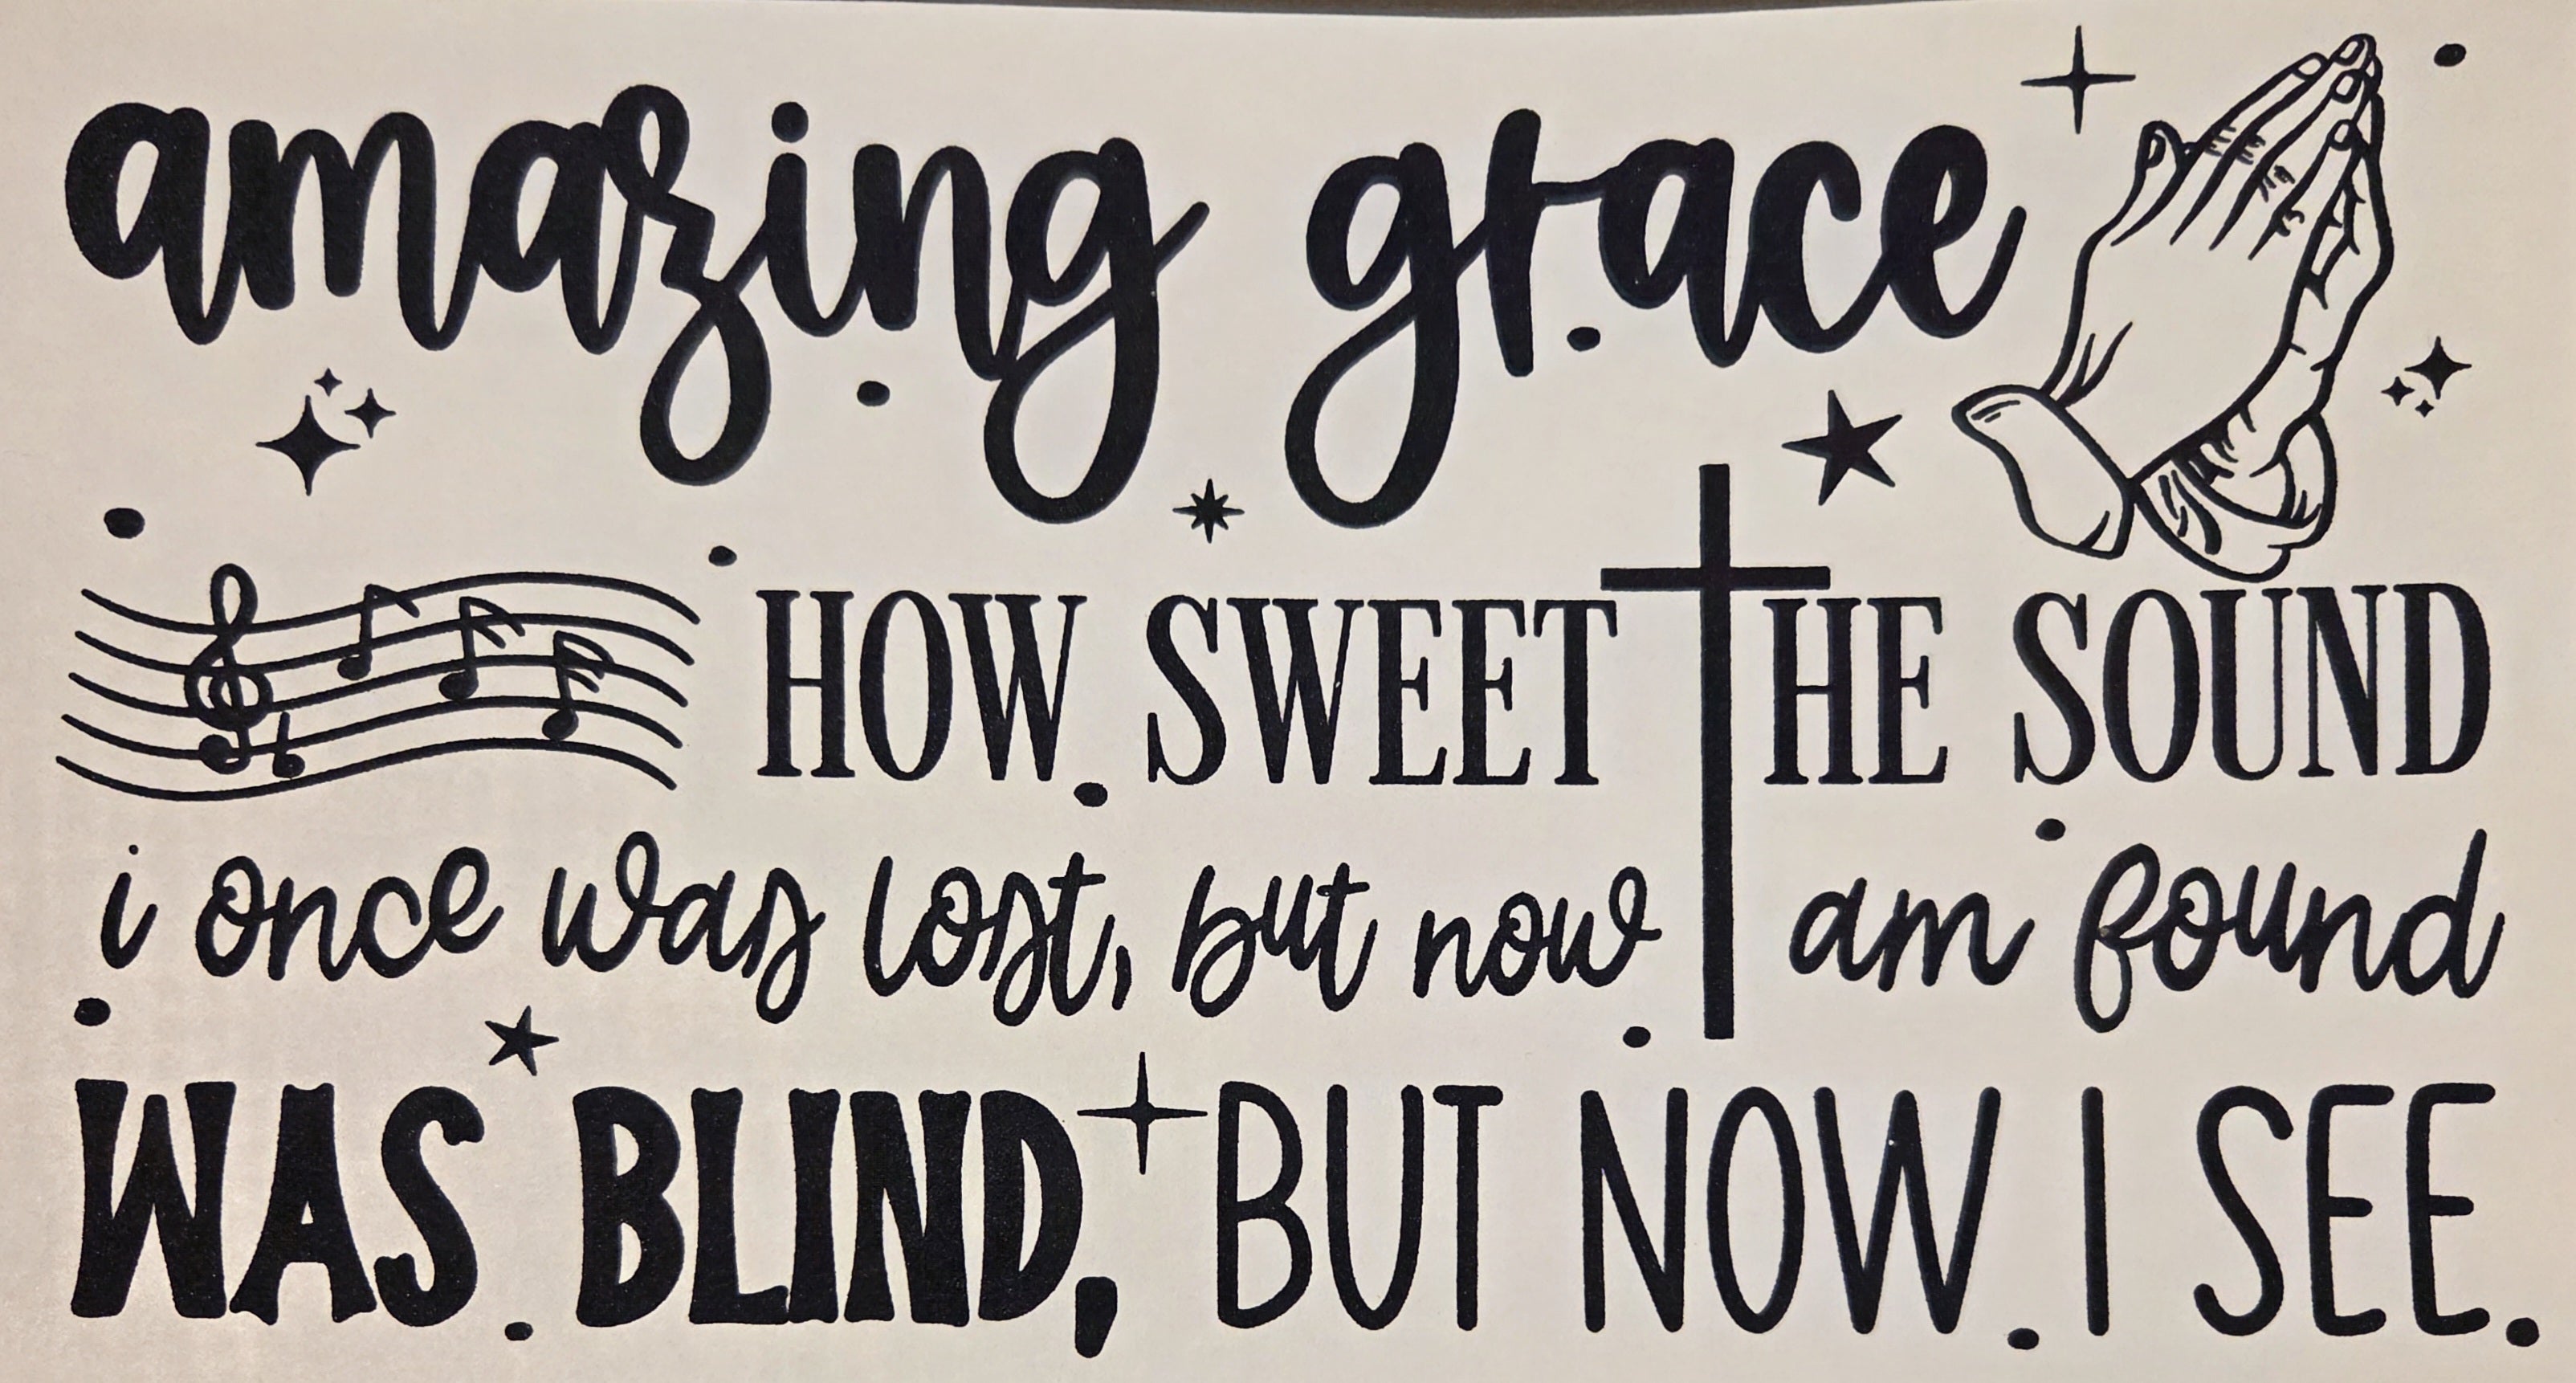 amazing grace
HOW SWEET THE SOUND
i once was lost, but now am found
WAS BLIND, BUT NOW I SEE.